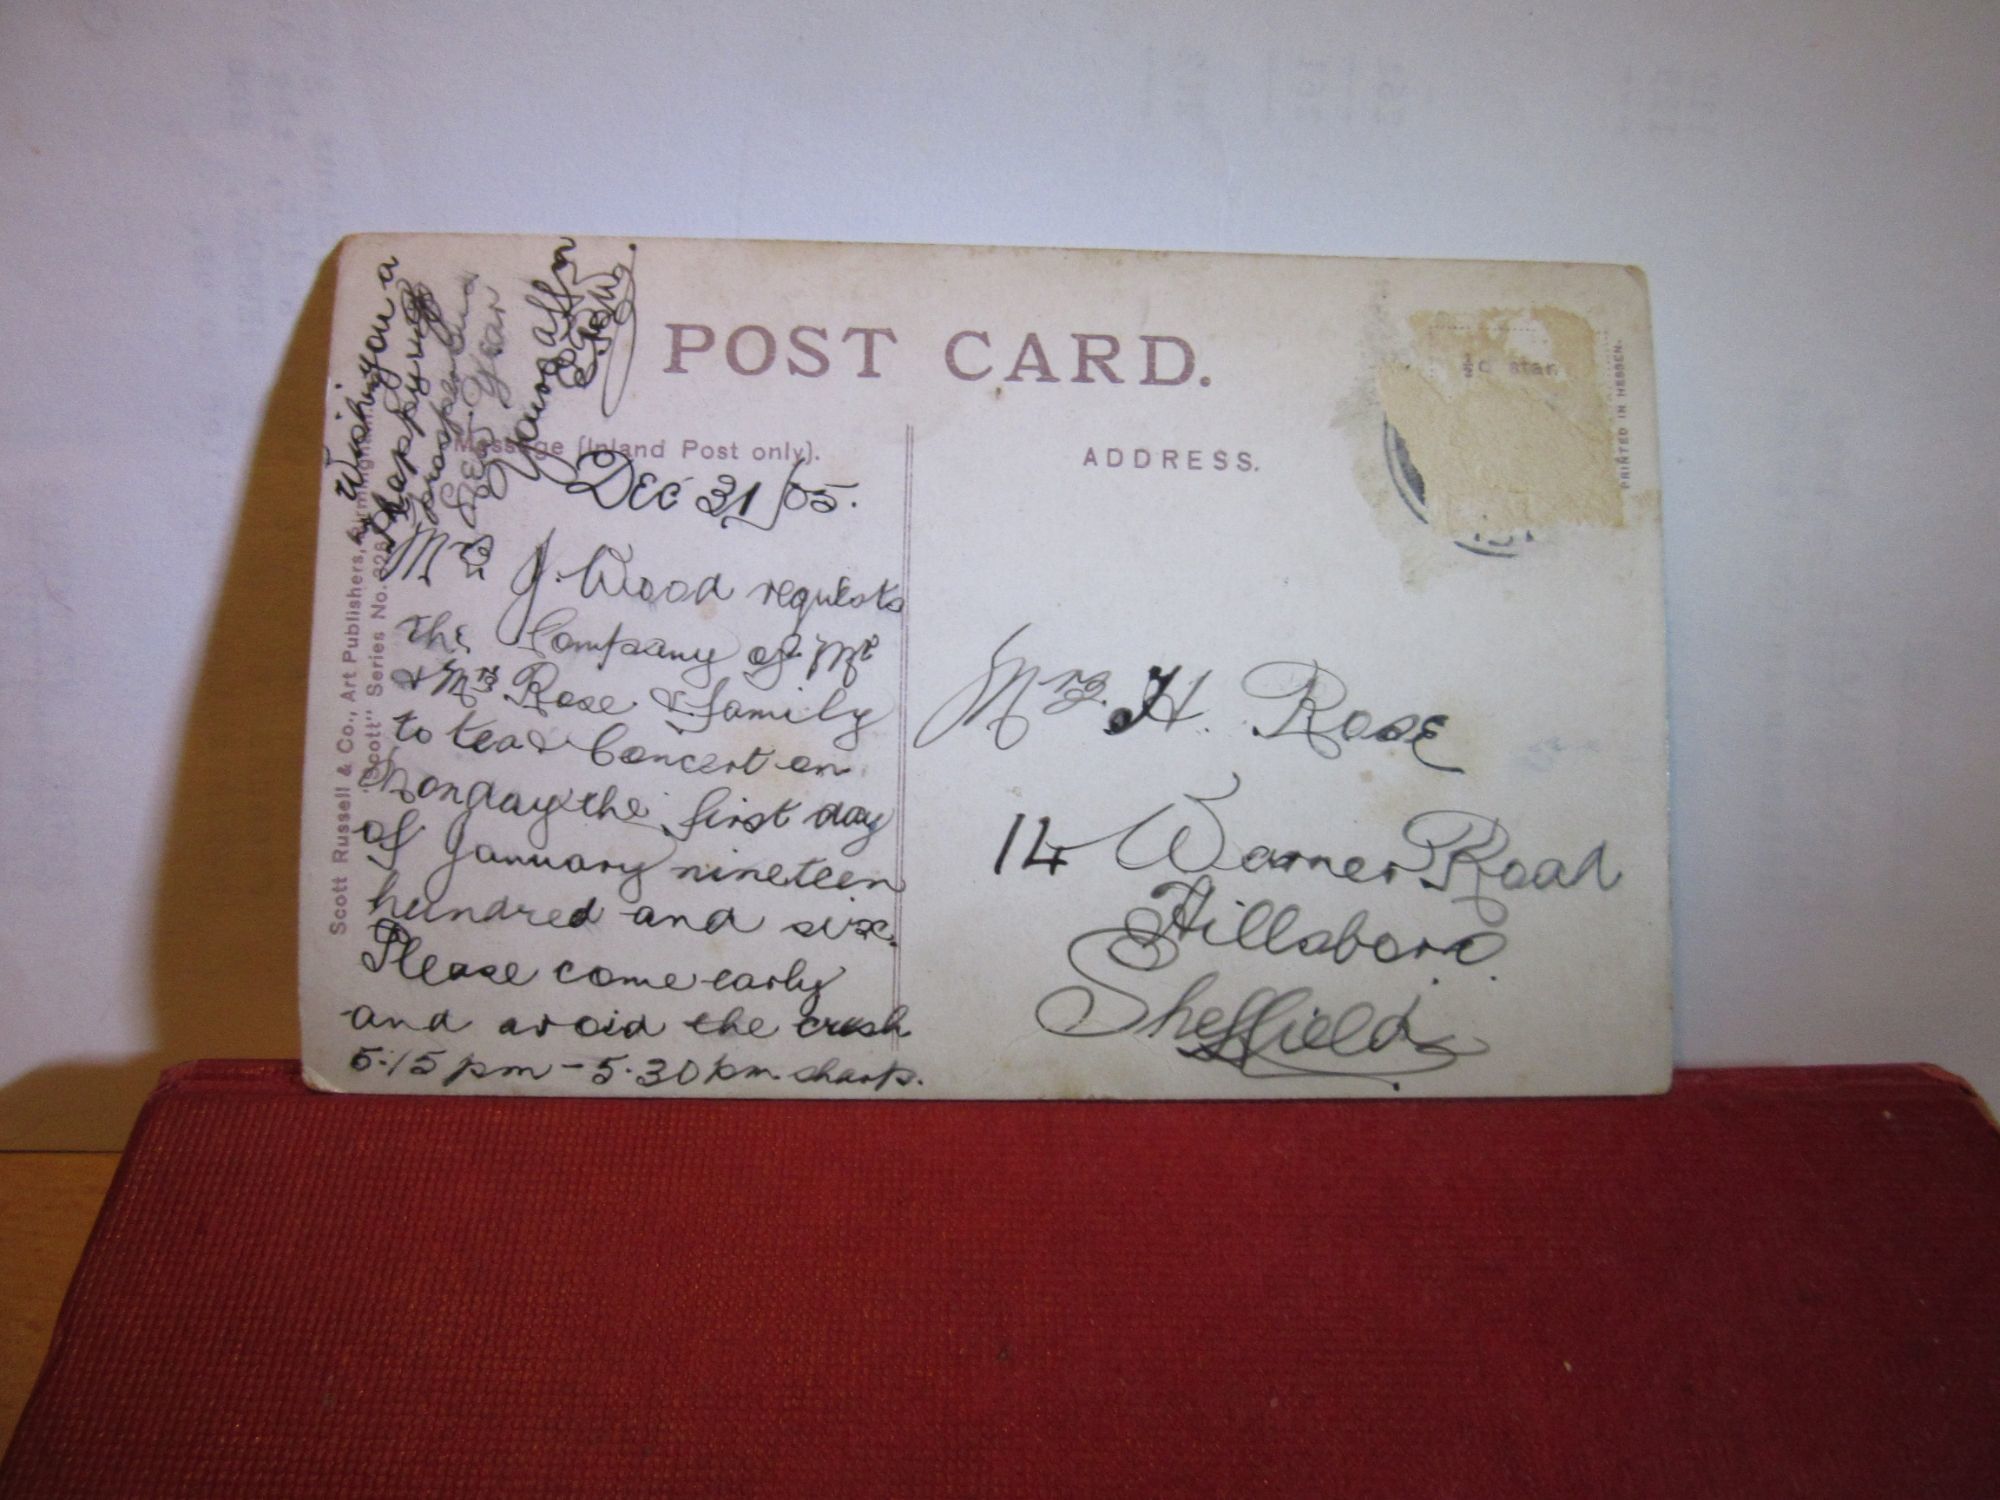 POST CARD.
Message (Inland Post only).
ADDRESS.
PRINTED IN HESSEN.
Scott Russell & Co., Art Publishers, Birmingham.
"Scott" Series No.
Dec 31/05.
Mrs J. Wood requests
the Company of Mr
& Mrs Rose & family
to tea & Concert on
Monday the first day
of January nineteen
hundred and six.
Please come early
and avoid the crush
5.15 pm - 5.30 pm. sharp.
Wishing you a
happy
prosperous
New Year
Yours affn
Mrs. H. Rose
14 Warner Road
Hillsboro.
Sheffield.